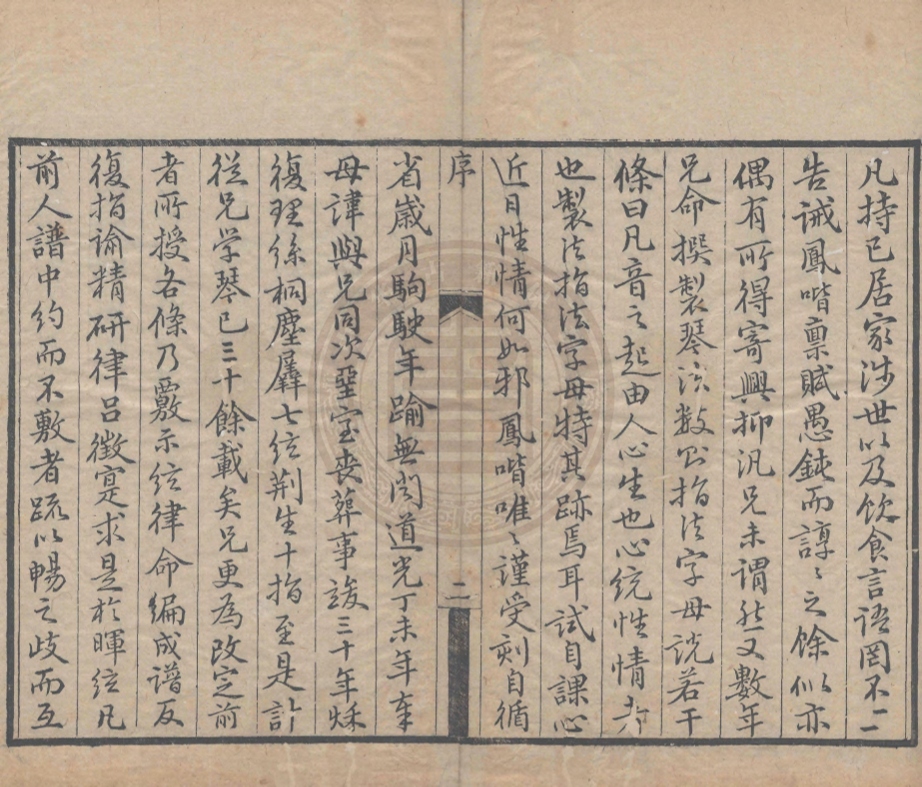 凡持已居家涉世以及飲食言語罔不一一
告誡鳳喈稟賦愚鈍而諄〻之餘似亦
偶有所得寄興抑汎兄未謂然又數年
兄命撰製琴法數則指法字母說若干
條曰凡音之起由人心生也心統性情者
也製法指法字母特其跡焉耳試自課心
近日性情何如邪鳳喈唯〻謹受刻自循
序
二
省歲月駒駛年踰無聞道光丁未年奉
母諱與兄同次堊室喪葬事竣三十年穌
復理絲桐塵羼七絃荆生十指至是計
從兄学琴已三十餘載矣兄更為改定前
者所授各條乃覈示絃律命編成譜反
復指諭精研律呂徵寔求是於暉絃凡
前人譜中約而不敷者疏以暢之歧而互